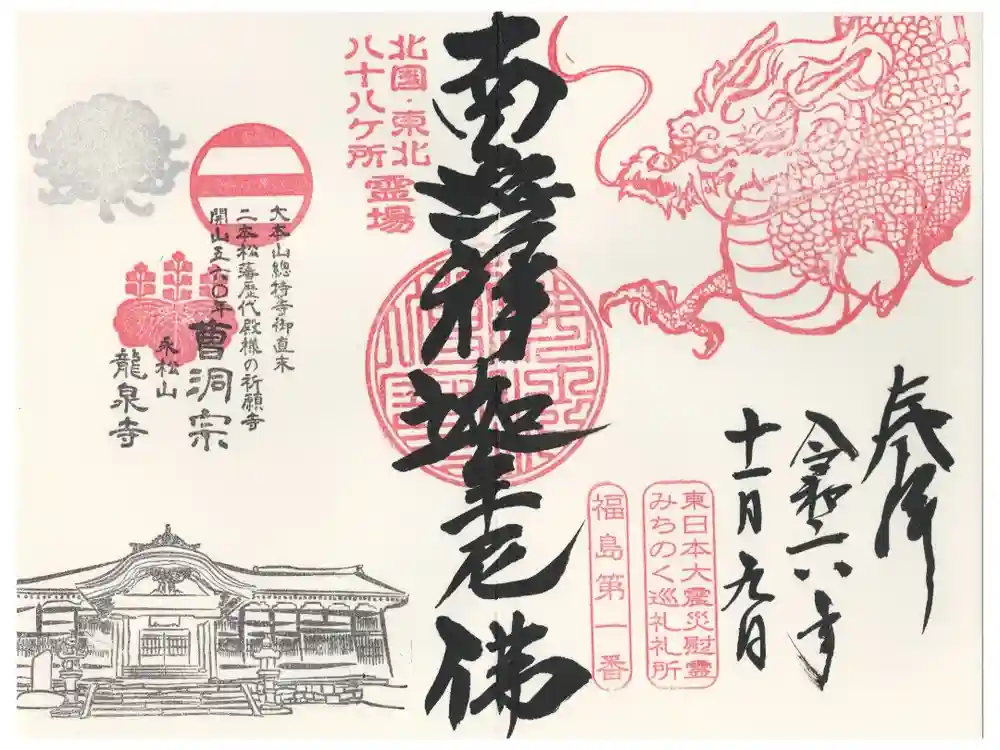 奉拝
令和六年
十一月九日
東日本大震災慰霊
みちのく巡礼札所
福島第一番
南無釋迦牟尼佛
北国・東北
八十八ケ所
霊場
大本山總持寺御直末
二本松藩歴代殿様の祈願寺
開山五六〇年
曹洞宗
永松山
龍泉寺